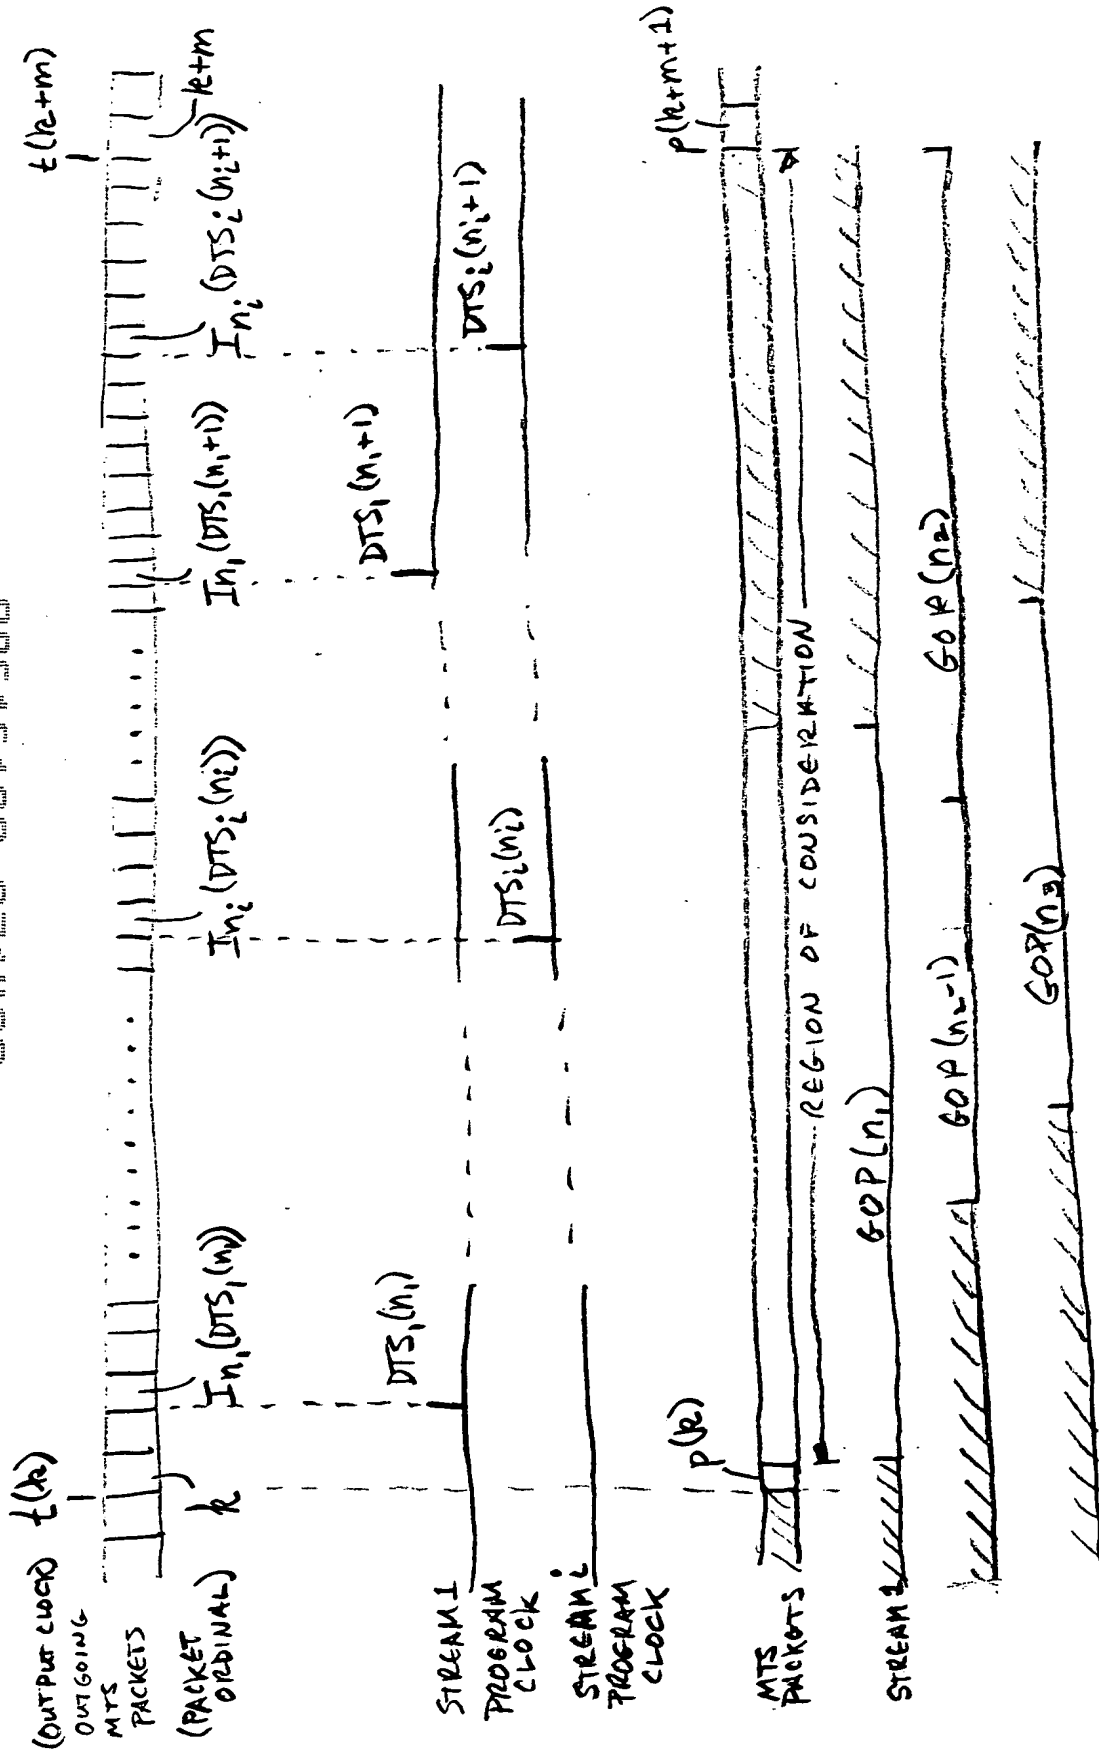 (OUTPUT CLOCK) t(k) t(k+m)
OUTGOING
MTS
PACKETS
(PACKET
ORDINAL)
k In₁(DTS₁(n₁)) In_i(DTS_i(n_i)) In₁(DTS₁(n₁+1)) In_i(DTS_i(n_i+1)) k+m
STREAM 1
PROGRAM
CLOCK
DTS₁(n₁) DTS₁(n₁+1)
STREAM i
PROGRAM
CLOCK
DTS_i(n_i) DTS_i(n_i+1)
p(k) p(k+m+1)
MTS
PACKETS
REGION OF CONSIDERATION
STREAM 1
GOP(n₁)
GOP(n₂-1) GOP(n₂)
GOP(n₃)